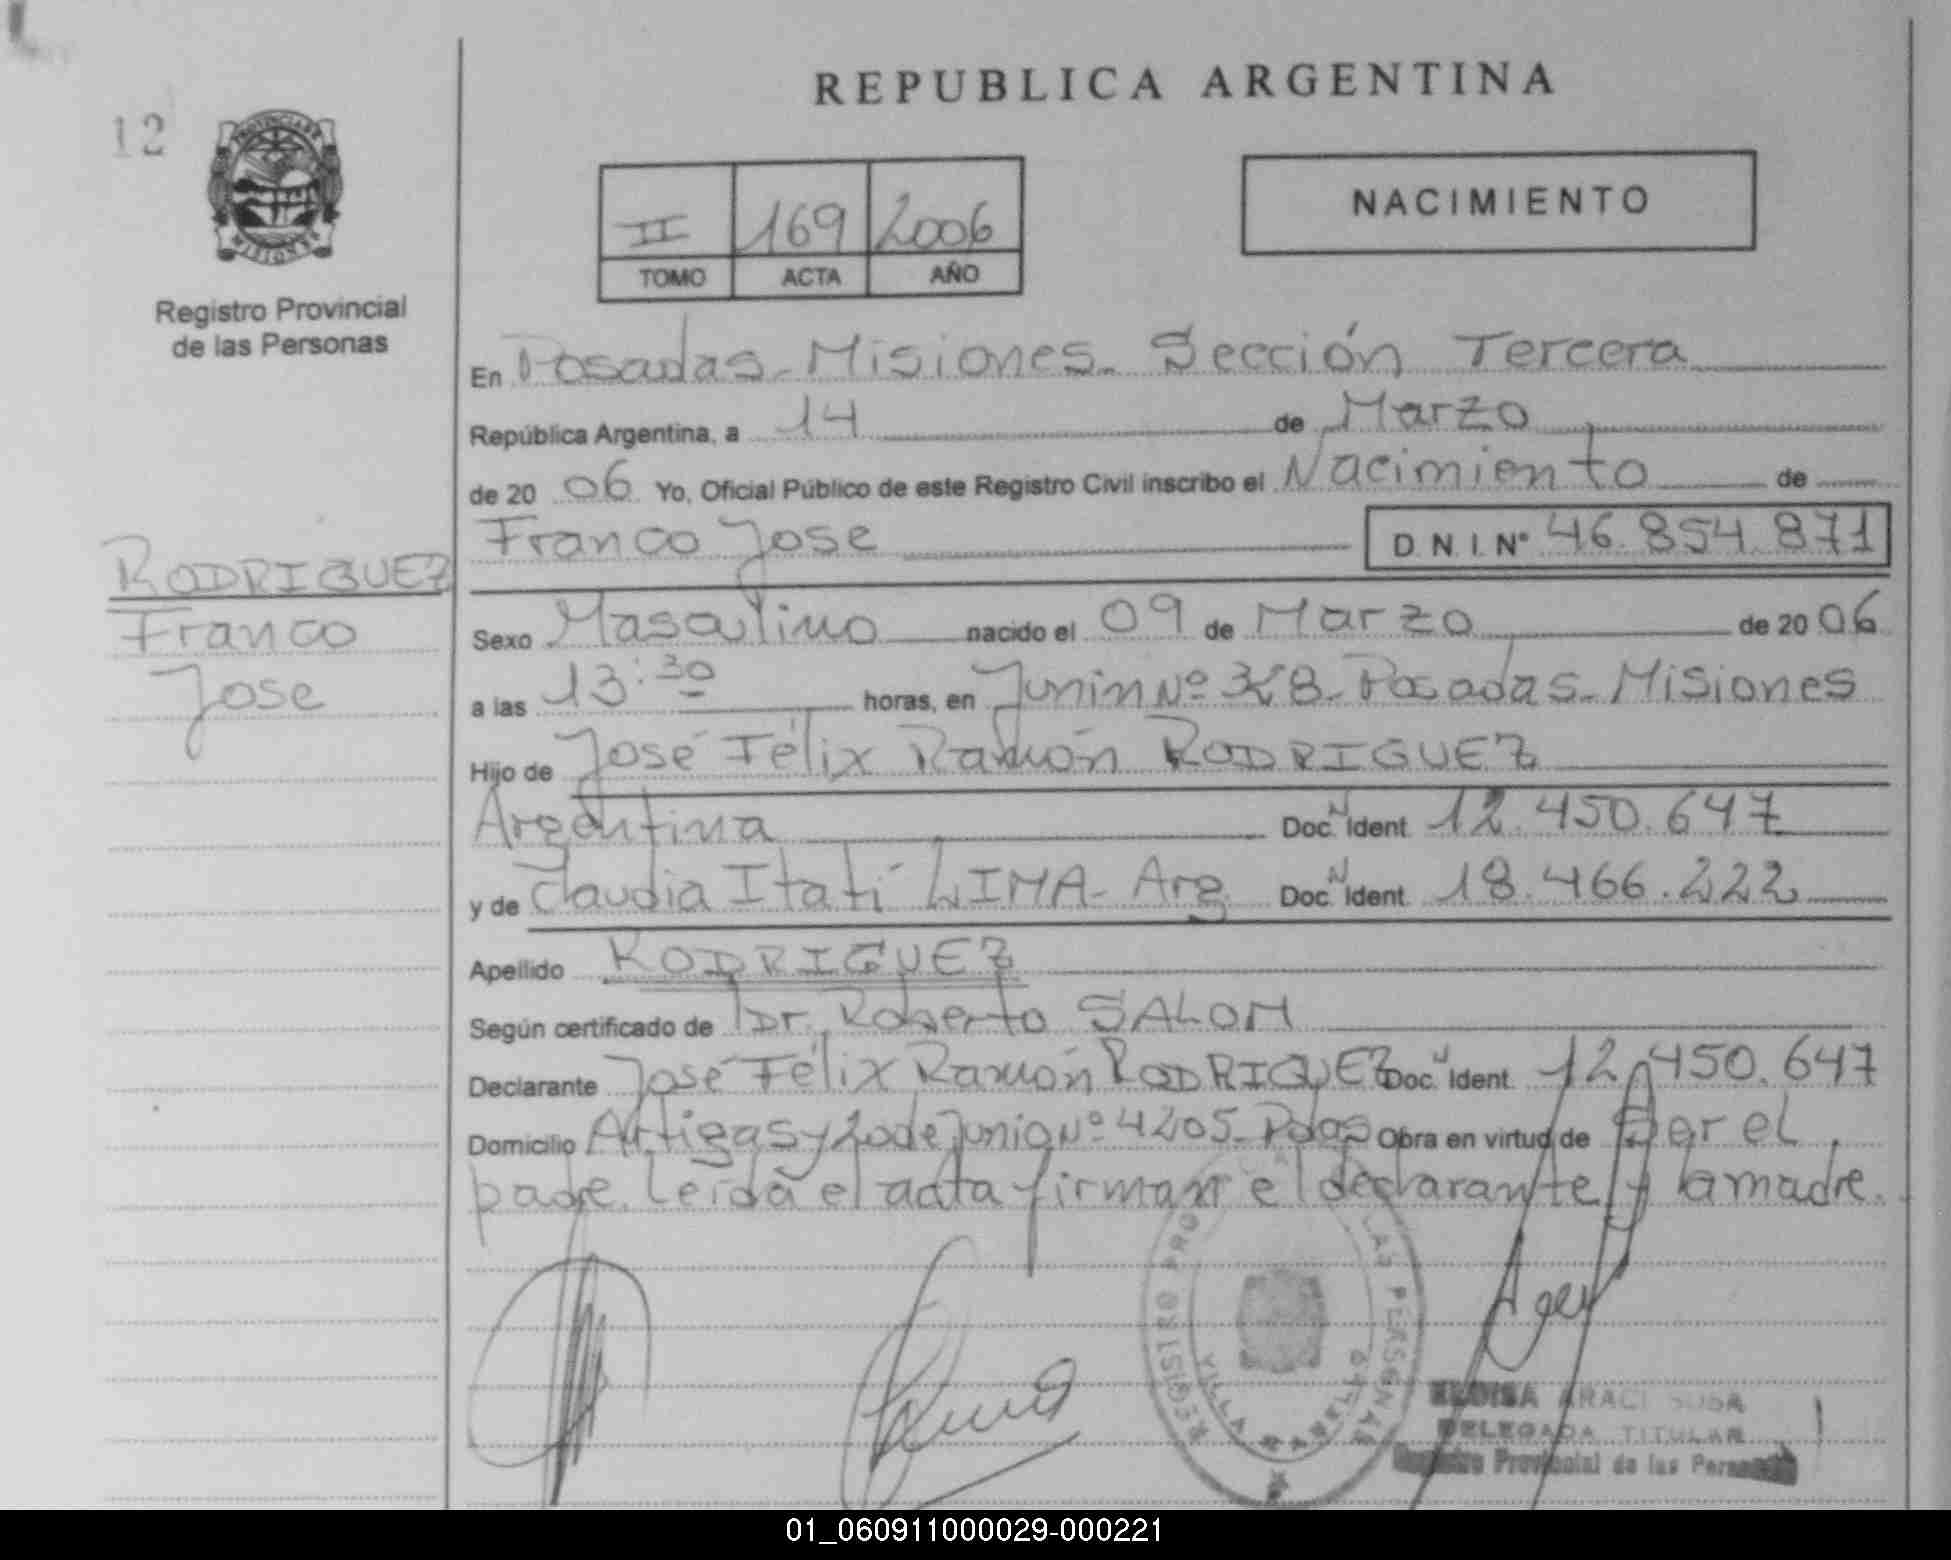 REPUBLICA ARGENTINA
12
PROVINCIA DE
MISIONES
Registro Provincial
de las Personas
II 169 2006
TOMO ACTA AÑO
NACIMIENTO
En Posadas - Misiones - Sección Tercera
República Argentina, a 14 de Marzo
de 20 06 Yo, Oficial Público de este Registro Civil inscribo el Nacimiento de
Franco Jose D. N. I. Nº 46.854.871
RODRIGUEZ
Franco
Jose
Sexo Masculino nacido el 09 de Marzo de 20 06
a las 13:30 horas, en Junin Nº Posadas - Misiones
Hijo de José Félix Ramón RODRIGUEZ
Argentina Doc. N Ident. 12.450.647
y de Claudia Itatí LIMA - Arg Doc. N Ident. 18.466.222
Apellido RODRIGUEZ
Según certificado de Dr. Roberto SALOM
Declarante José Félix Ramón RODRIGUEZ Doc. N Ident. 12.450.647
Domicilio Artigas y 20 de Junio Nº 4205 - Pdas Obra en virtud de Ser el
padre. Leída el acta firman el declarante y la madre.
REGISTRO PRO LAS PERSONAS
VILLA
ELOISA ARACI SOSA
DELEGADA TITULAR
Registro Provincial de las Personas
01_060911000029-000221